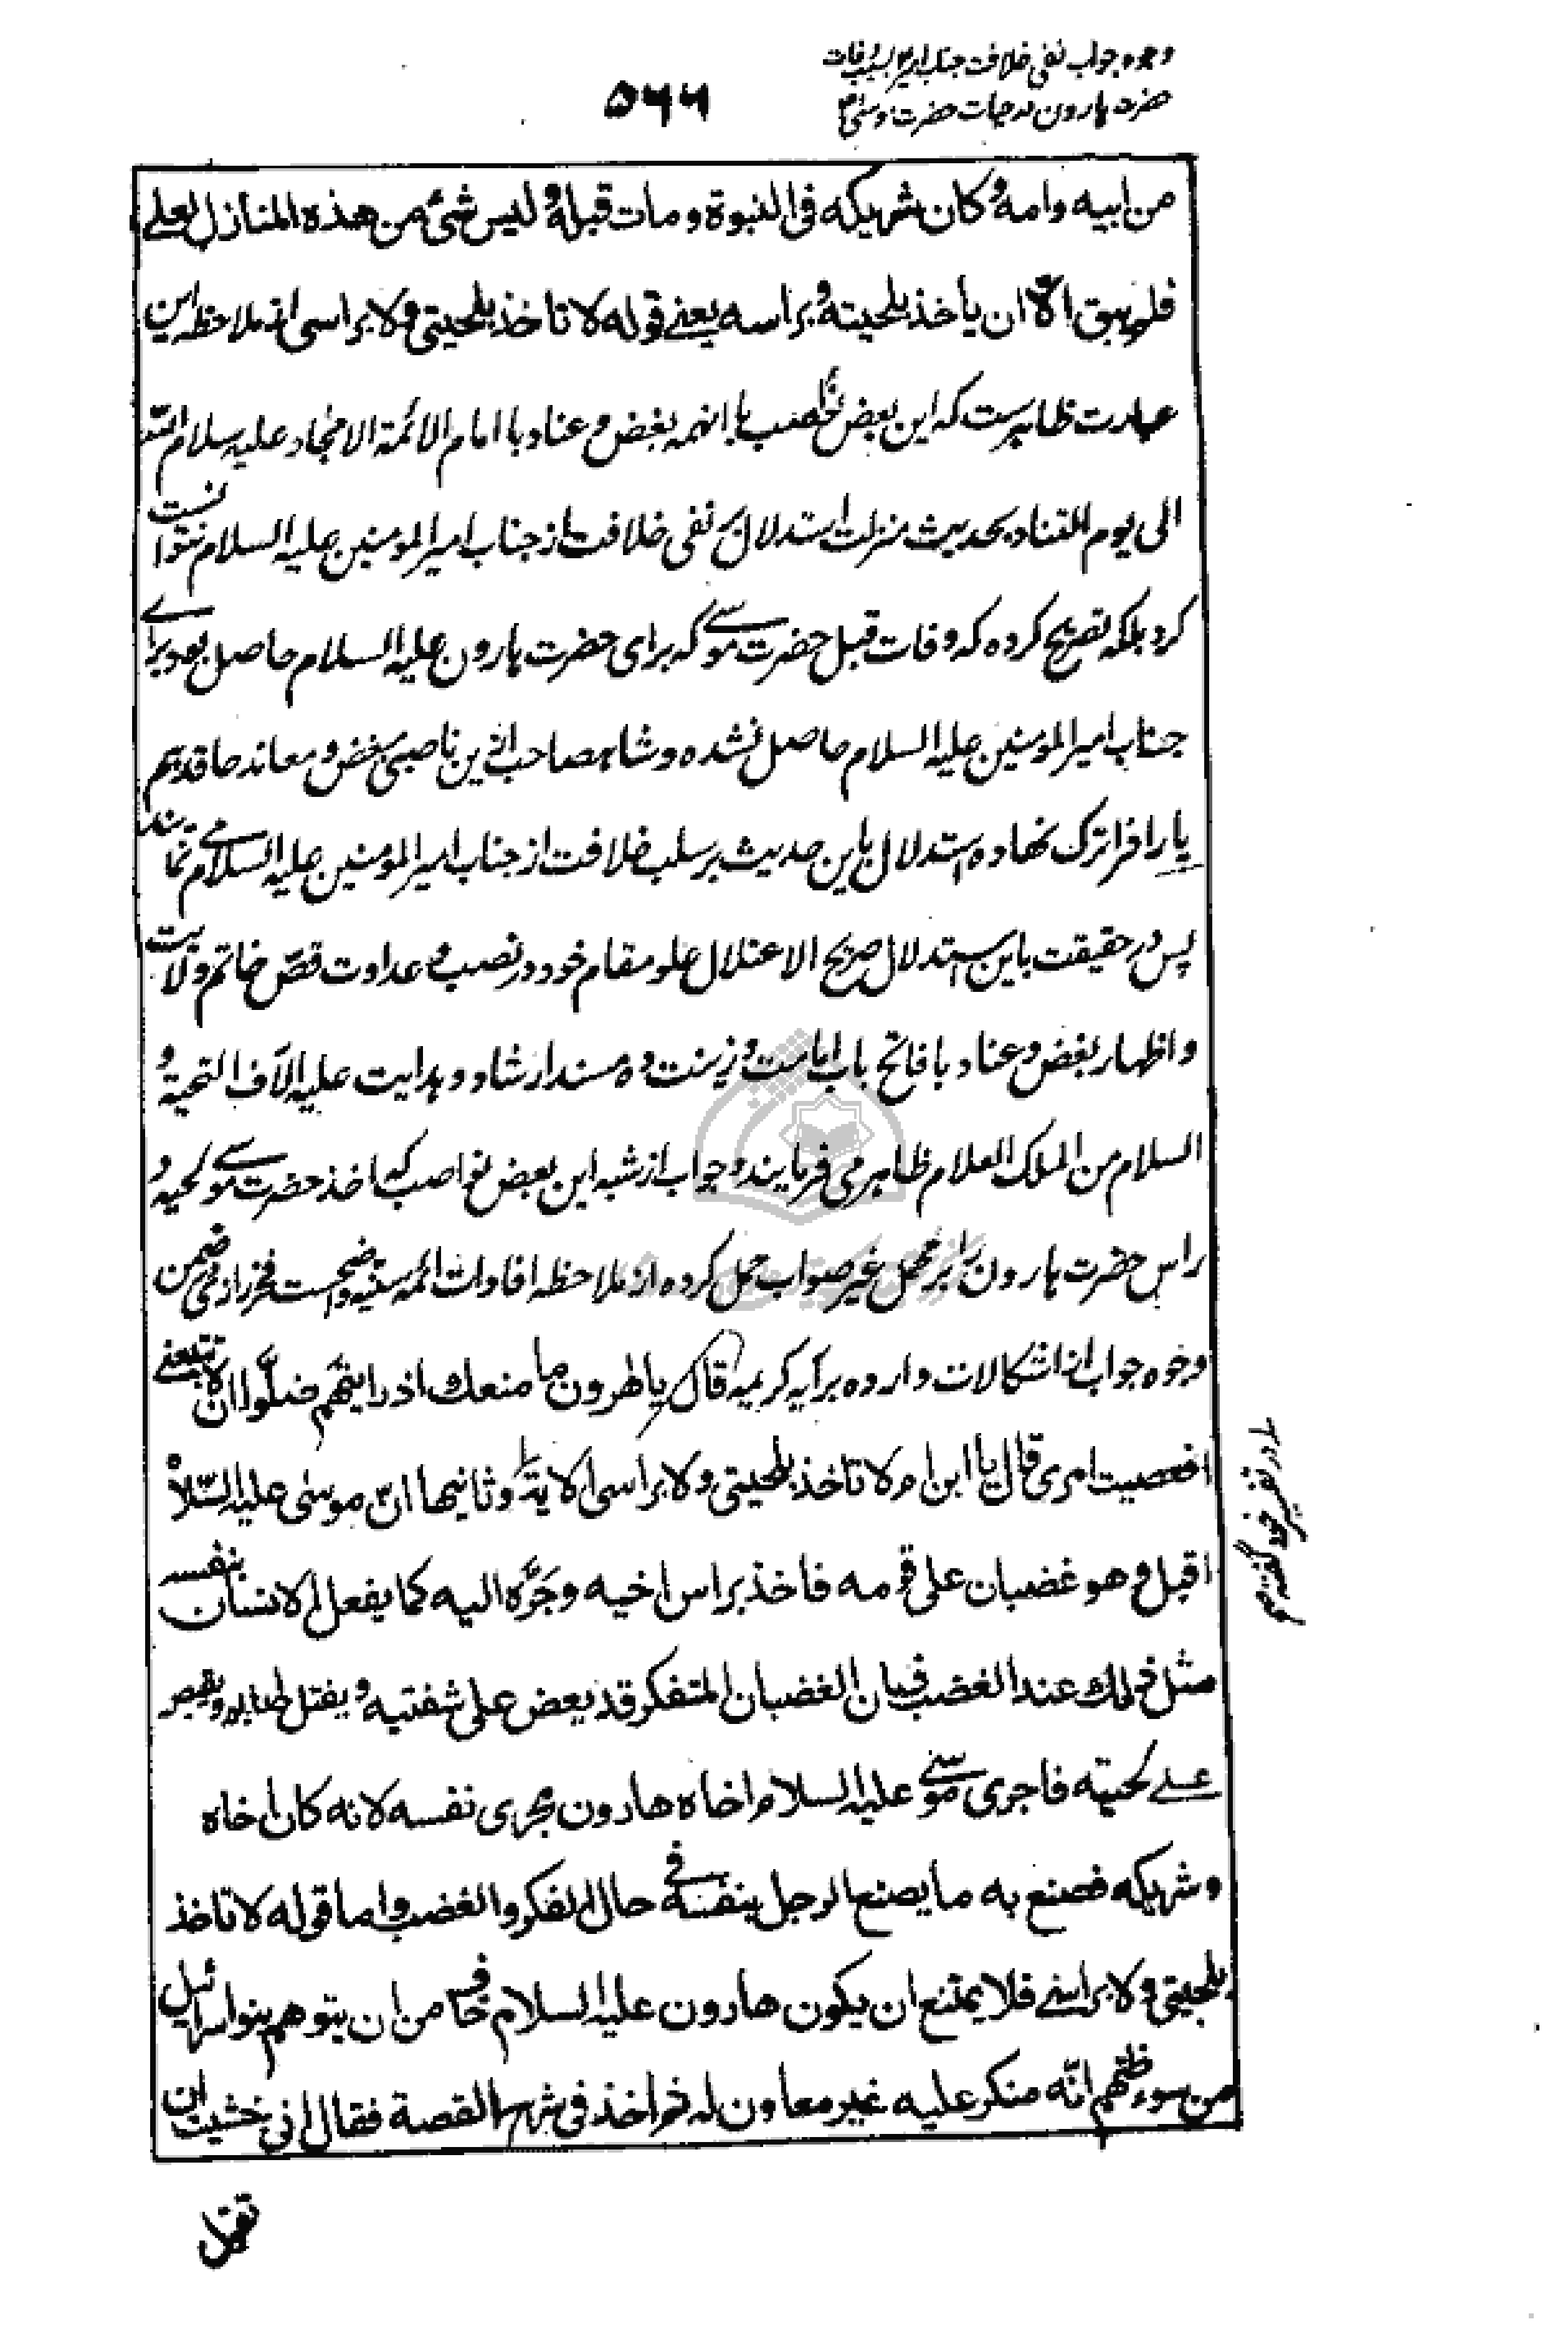 وجوه جواب نفی خلافت جناب امیرؑ بسبب وفات
حضرت هارون در حیات حضرت موسیٰؑ
۵۶۶
من ابیه وامه وکان شریکه فی النبوة ومات قبله ولیس شیٔ من هذه المنازل لعلی
فلم یبق الّا ان یأخذ بلحیته وبراسه یعنی قوله لا تاخذ بلحیتی ولا براسی از ملاحظه این
عبارت ظاهرست که این بعض نواصب با اینهمه بغض و عناد با امام الائمة الامجاد علیه سلام اللّه
الی یوم التناد بحدیث منزلت استدلال بر نفی خلافت از جناب امیر المومنین علیه السلام نتوانست
کرد بلکه تصریح کرده که وفات قبل حضرت موسی که برای حضرت هارون علیه السلام حاصل بود برای
جناب امیر المومنین علیه السلام حاصل نشده و شاهصاحب ازین ناصبی مبغض و معاند حاقد هم
پا را فراترک نهاده استدلال باین حدیث بر سلب خلافت از جناب امیر المومنین علیه السلام می نمایند
پس در حقیقت باین استدلال صریح الاعتلال علو مقام خود در نصب و عداوت قصّ خاتم ولایت
و اظهار بغض و عناد با فاتح باب امامت و زینت ده مسند ارشاد و هدایت علیه آلاف التحیة و
السلام من الملک العلام ظاهر می فرمایند و جواب از شبه این بعض نواصب که اخذ حضرت موسی لحیه و
راس حضرت هارون را بر محمل غیر صواب حمل کرده از ملاحظه افادات ائمه سنیه واضحست فخر رازی ضمن
وجوه جواب از اشکالات وارده بر آیه کریمه قال یا هرون ما منعك اذ رایتهم ضلّوا ان لا تتبعنی
افعصیت امری قال یا ابن ام لا تاخذ بلحیتی ولا براسی الایة وثانیها انّ موسی علیه السّلام
اقبل وهو غضبان علی قومه فاخذ براس اخیه وجَرَّه الیه کما یفعل الانسان بنفسه
مثل ذلك عند الغضب فان الغضبان المتفکر قد یعض علی شفتیه ویفتل اصابعه ویقبض
علی لحیته فاجری موسی علیه السلام اخاه هارون مجری نفسه لانه کان اخاه
وشریکه فصنع به ما یصنع الرجل بنفسه فی حال الفکر والغضب واما قوله لا تاخذ
بلحیتی ولا براسی فلا یمتنع ان یکون هارون علیه السلام خاف من ان یتوهم بنو اسرائیل
من سوء ظنّهم انّه منکر علیه غیر معاون له ثم اخذ فی شرح القصة فقال انی خشیت ان
در تفسیر خود گفته
تقول